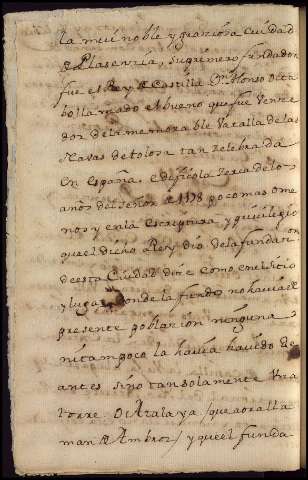 la mui noble y graziosa Ciudad
de Plasenzia, su primero fundador
fue el Rey de Castilla Dn Alonso octa
bo llamado el bueno que fue Venze
dor de la memorable Vatalla de las
Navas de tolosa tan zelebrada
en España, edificola zerca de los
años del Señor de 1178 poco mas o me
nos y en la escriptura y previlegio
que el dicho Rey dio de la fundacion
de esta Ciudad dize como en el sitio
y lugar donde la fundo no havia al
presente poblazion ninguna
ni tampoco la havia havido de
antes sino tan solamente Vna
torre o Atalaya / que aora lla
man de Ambroz / y que el funda